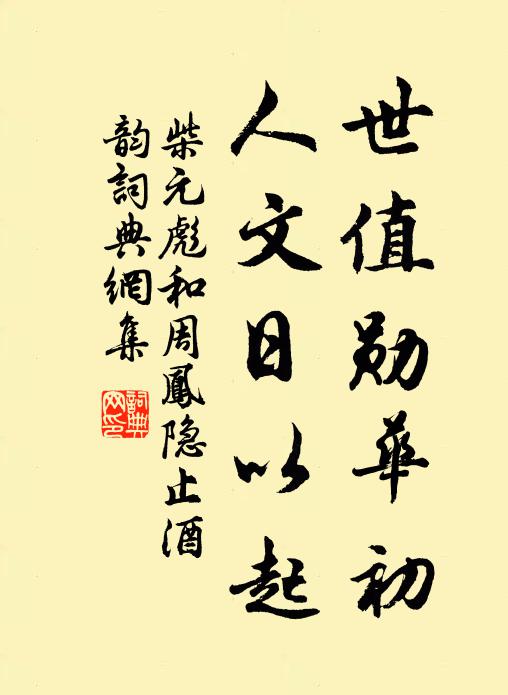 世值勋华初
人文日以起
柴元彪和周鳳隐止酒
韵詞典網集
詞典网印